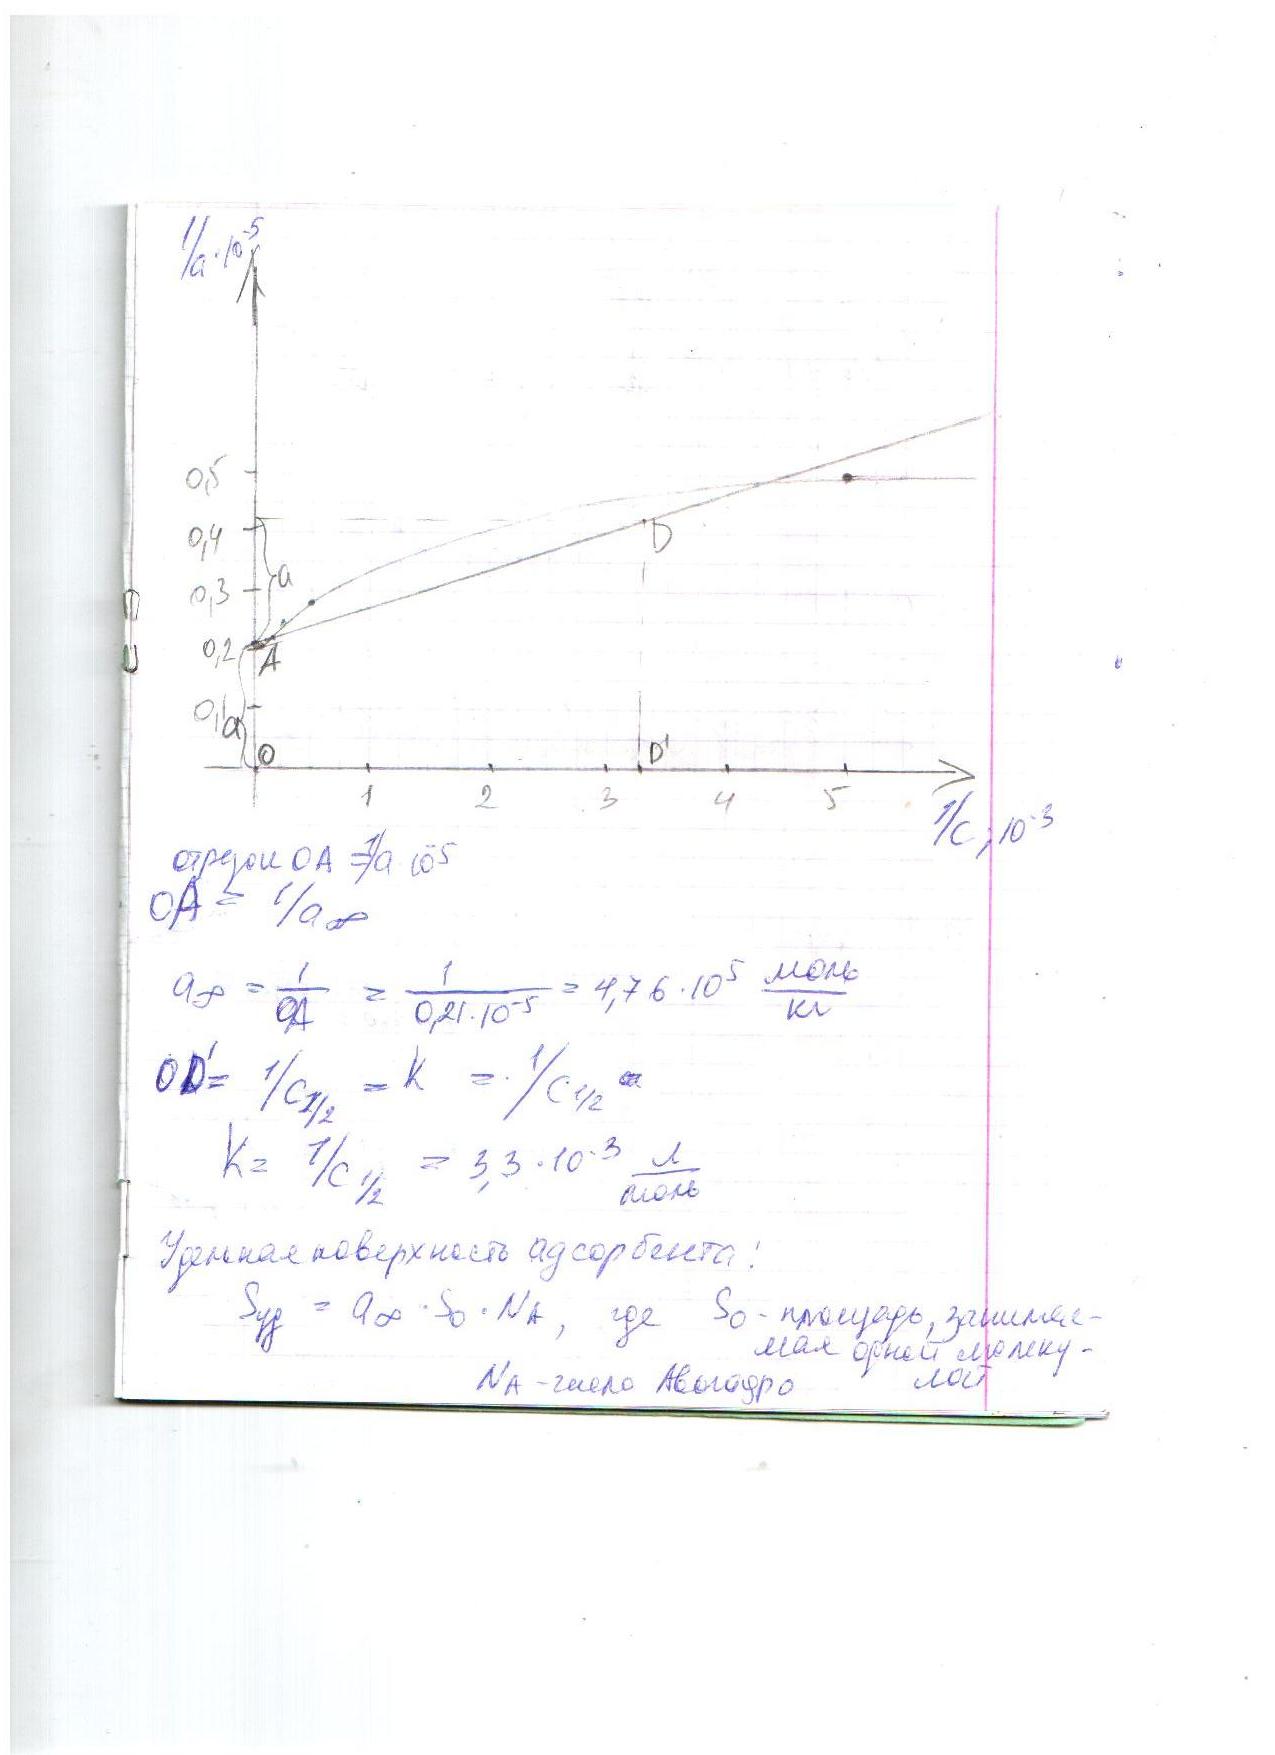 1/a·10⁻⁵
0,5
0,4
D
0,3
a
0,2
A
0,1
a
O
D'
1
2
3
4
5
1/C, 10⁻³
отрезок OA = 1/a·10⁻⁵
OA = 1/a∞
a∞ = 1/OA = 1/(0,21·10⁻⁵) = 4,76·10⁵ моль/кг
OD' = 1/C1/2 = K = 1/C1/2
K = 1/C1/2 = 3,3·10⁻³ л/моль
Удельная поверхность адсорбента:
Sуд = a∞·S0·NA, где S0 - площадь, занимае-
мая одной молеку-
лой
NA - число Авогадро